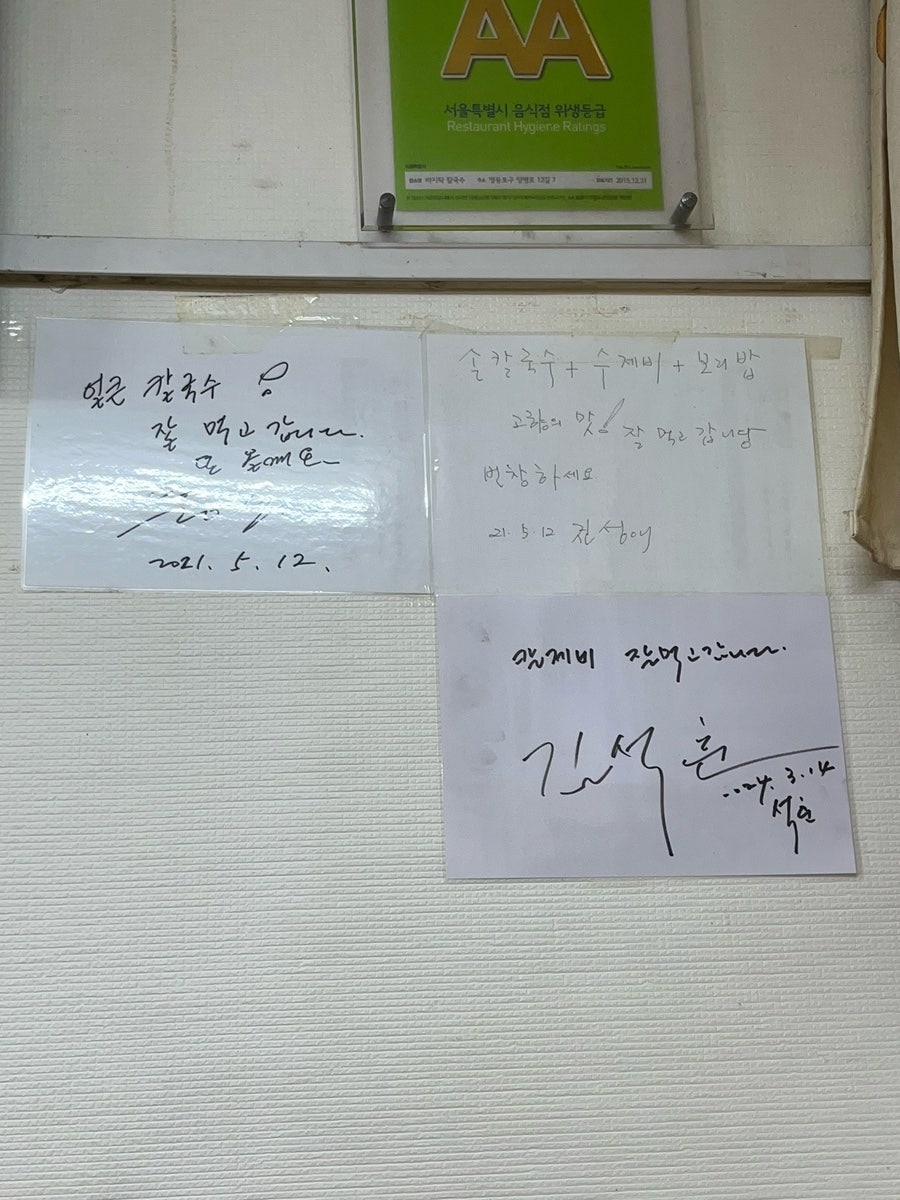 AA
서울특별시 음식점 위생등급
Restaurant Hygiene Ratings
바지락 칼국수 주소 영등포구 양평로 12길 7 2015.12.31
얼큰 칼국수 !
잘 먹고 갑니다.
또 올께요
2021. 5. 12.
손칼국수 + 수제비 + 보리밥
고향의 맛! 잘 먹고 갑니당
번창하세요
21. 5. 12 전성애
칼제비 잘먹고갑니다.
김석훈
2024. 3. 14
석훈